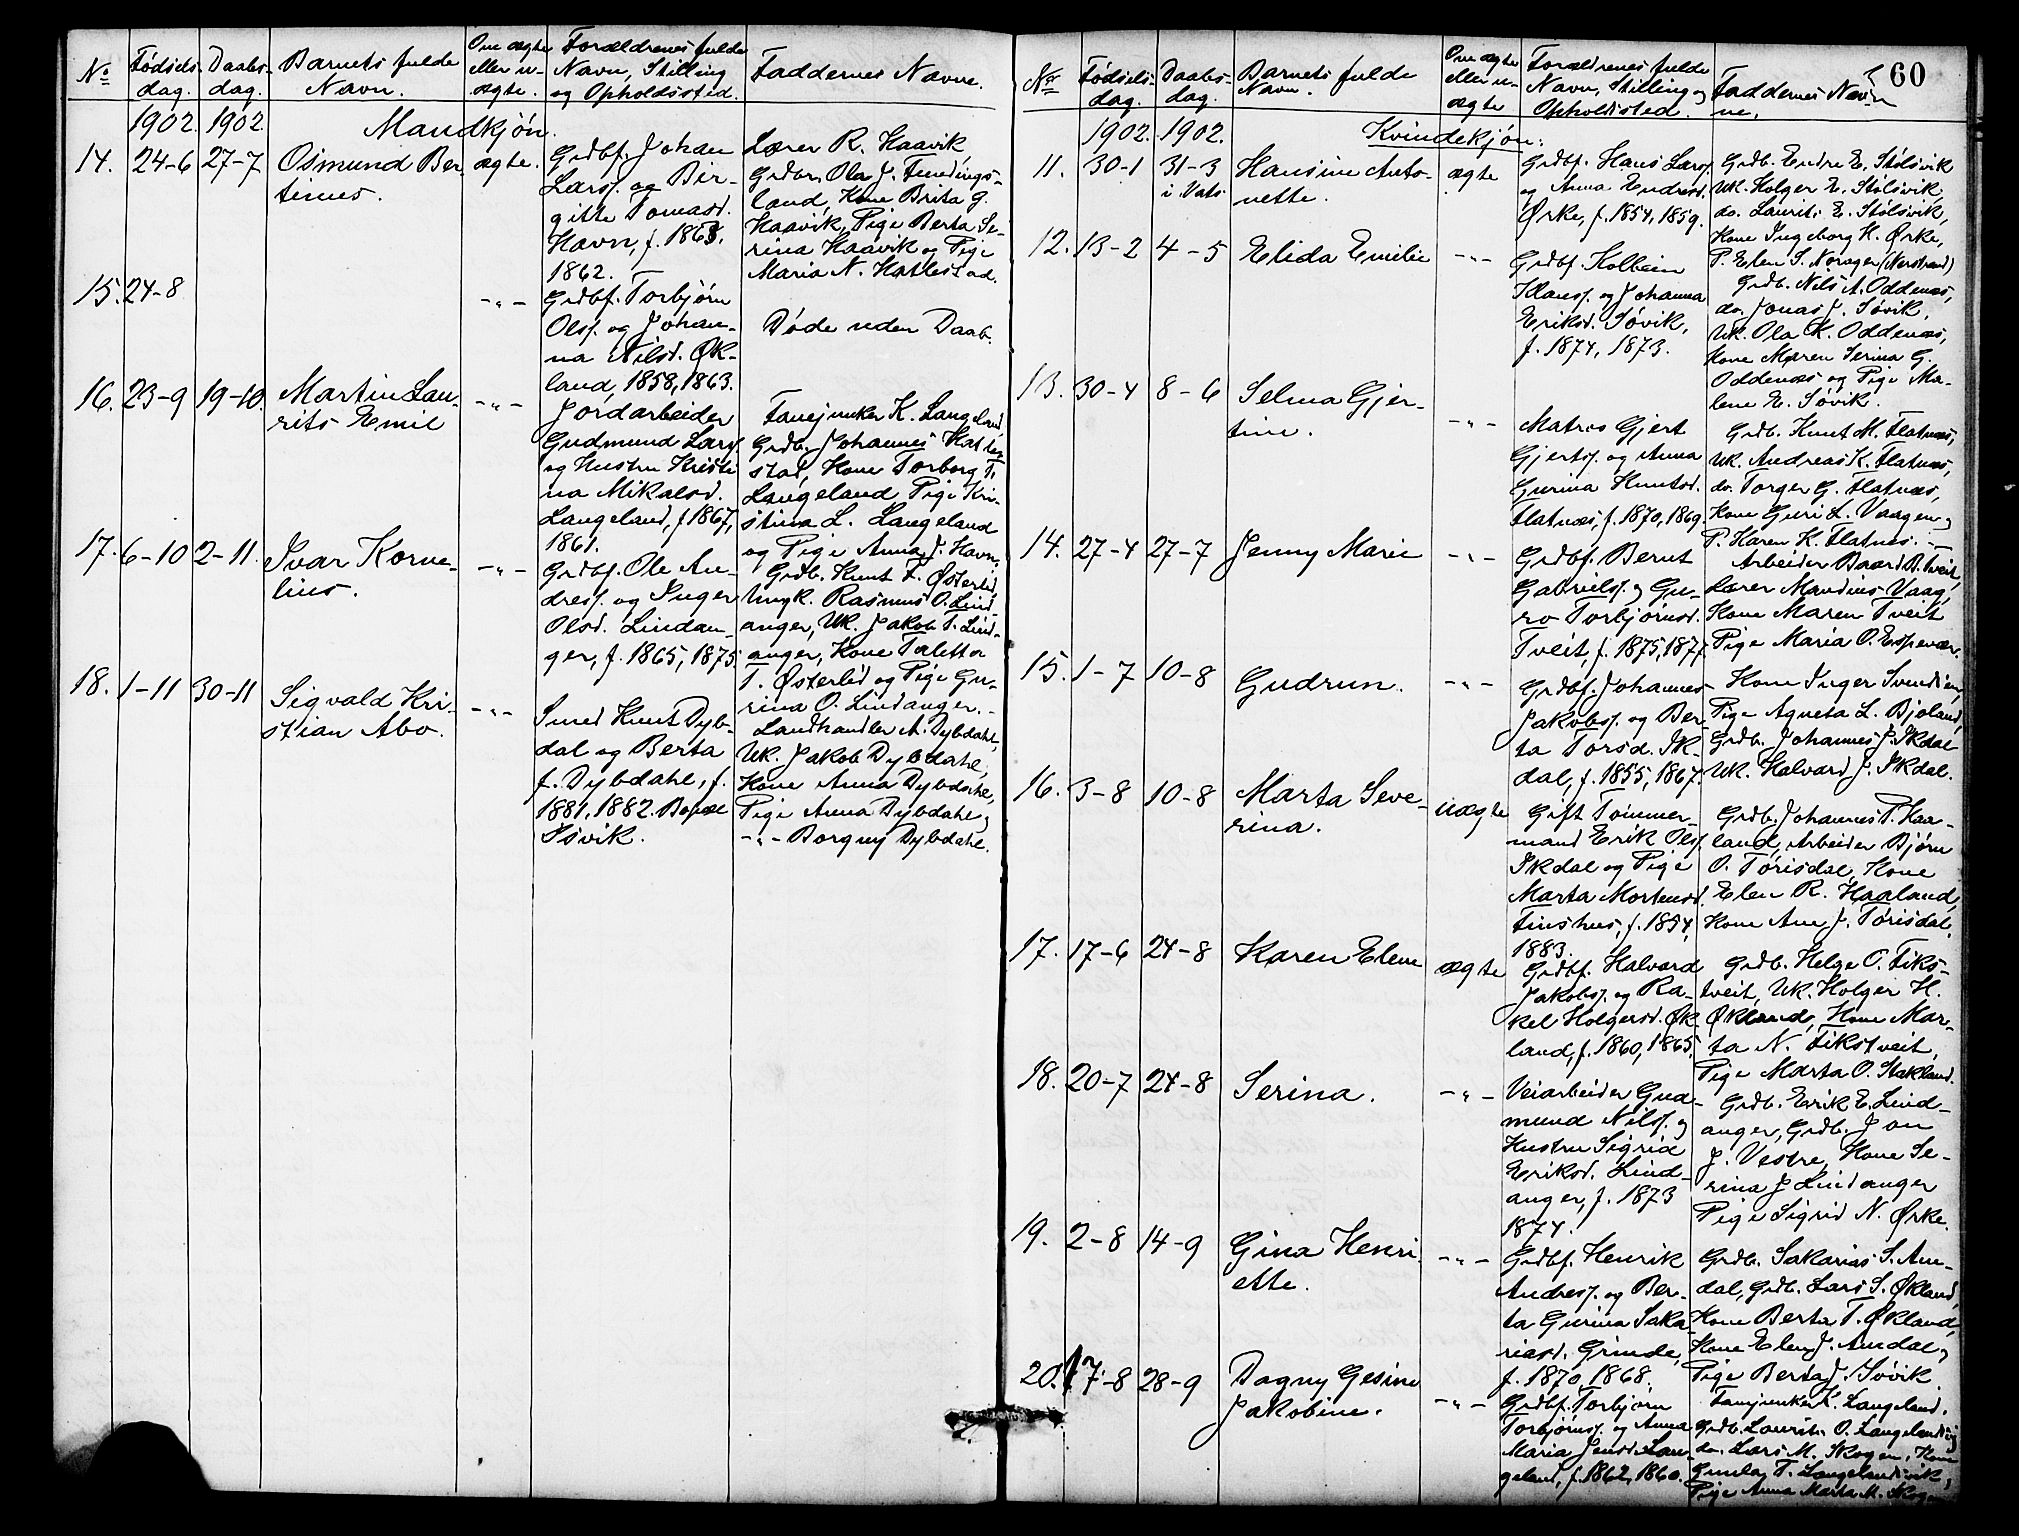 No Fødsels- dag. Daabs- dag. Barnets fulde Navn. Om ægte eller u- ægte. Forældrenes fulde Navn, Stilling og Opholdssted. Faddernes Navne.
1902. 1902. Mandkjøn.
14. 24-6 27-7 Osmund Ber
tines.
ægte.
Grdbf. Johan
Larss. og Bir-
gitte Tomasd.
Havn, f. 1863,
1862.
Lærer R. Haavik
Grdbr. Ola J. Fendings-
land, Kone Brita G.
Haavik, Pige Berta Se-
rina Haavik og Pige
Maria N. Hattestad.
15. 24-8
-"-
Grdbf. Torbjørn
Olss. og Johan-
na Nilsd. Øk-
land, 1858, 1863.
Døde uden Daab.
16. 23-9 19-10. Martin Lau-
rits Emil
-"-
Jordarbeider
Gudmund Larss.
og Hustru Kristi
na Mikalsd.
Langeland, f. 1867,
1861.
Fanejunker K. Langeland,
Grdb. Johannes Katten
stad, Kone Torborg T.
Langeland, Pige Kri-
stina L. Langeland
og Pige Anna J. Havn.
17. 6-10 2-11. Ivar Korne-
lius.
-"-
Grdbf. Ole An-
dress. og Inger
Olsd. Lindan-
ger, f. 1865, 1875.
Grdb. Knut T. Østerlid
Ungk. Rasmus O. Lind-
anger, Uk. Jakob T. Lind-
anger, Kone Taletta
T. Østerlid og Pige Gu-
rina O. Lindanger.
18. 1-11 30-11 Sigvald Kri-
stian Abo.
-"-
Smed Knut Dyb-
dal og Berta
f. Dybdahl, f.
1881, 1882. Bopæl
Søvik.
Landhandler A. Dybdahl,
Uk. Jakob Dybdahl,
Kone Anna Dybdahl,
Pige Anna Dybdahl og
-"- Borgny Dybdahl.
60
No Fødsels- dag. Daabs- dag. Barnets fulde Navn. Om ægte eller u- ægte Forældrenes fulde Navn, Stilling og Opholdssted. Faddernes Nav- ne.
1902. 1902. Kvindekjøn.
11. 30-1 31-3
i Vats
Hansine Anto-
nette.
ægte
Grdbf. Hans Larss.
og Anna Endresd.
Ørke, f. 1854, 1859.
Grdb. Endre E. Stølsvik
Uk. Holger E. Stølsvik,
do. Laurits E. Stølsvik,
Kone Ingeborg H. Ørke,
P. Elen S. Norager (Nerstrand)
12. 13-2 4-5 Elida Emilie
-"-
Grdbf. Kolbein
Klauss. og Johanna
Eriksd. Søvik,
f. 1874, 1873.
Grdb. Nils A. Oddenæs,
do. Jonas J. Søvik,
Uk. Ola K. Oddenæs,
Kone Maren Serina G.
Oddenæs og Pige Ma-
lene E. Søvik.
13. 30-4 8-6 Selma Gjer-
tine.
-"-
Matros Gjert
Gjertss. og Anna
Gurina Knutsd.
Flatnæs, f. 1870, 1869.
Grdb. Knut M. Flatnæs,
Uk. Andreas K. Flatnæs,
do. Torger G. Flatnæs,
Kone Guri L. Vaagen og
P. Karen K. Flatnæs.
14. 27-4 27-7 Jenny Marie
-"-
Grdbf. Bernt
Gabrielss. og Gu-
ro Torbjørnsd.
Tveit, f. 1875, 1877.
Arbeider Baard B. Tveit,
Lærer Mandius Vaag,
Kone Maren Tveit
Pige Maria O. Espevær.
15. 1-7 10-8 Gudrun.
-"-
Grdbf. Johannes
Jakobss. og Ber-
ta Torsd. Ik-
dal, f. 1855, 1867.
Kone Inger Svendsen,
Pige Agneta L. Bjoland,
Grdb. Johannes J. Ikdal
Uk. Halvard J. Ikdal.
16. 3-8 10-8 Marta Seve-
rina.
uægte
Gift Tømmer-
mand Erik Olss.
Ikdal og Pige
Marta Mortensd.
Finshus, f. 1854,
1883.
Grdb. Johannes T. Haa-
land, Arbeider Bjørn
O. Tørisdal, Kone
Elen R. Haaland,
Kone Ane J. Tørisdal.
17. 17-6 24-8 Karen Elene
ægte
Grdbf. Halvard
Jakobss. og Ra-
kel Holgersd. Øk
land, f. 1860, 1865.
Grdb. Helge O. Fiks-
tveit, Uk. Holger H.
Økland, Kone Mar-
ta N. Fikstveit,
Pige Marta O. Stakland.
18. 20-7 24-8 Serina.
-"-
Veiarbeider Gud-
mund Nilss. og
Hustru Sigrid
Eriksd. Lind-
anger, f. 1873
1874.
Grdb. Erik E. Lind-
anger, Grdb. Jon
J. Vestre, Kone Se-
rina J Lindanger
Pige Sigrid N. Ørke.
19. 2-8 14-9 Gina Henri
ette.
-"-
Grdbf. Henrik
Andress. og Ber-
ta Gurina Saka-
riasd. Grinde,
f. 1870, 1868.
Grdb. Sakarias S. Am-
dal, Grdb. Lars S. Økland,
Kone Berta T. Økland,
Kone Elen J. Amdal og
Pige Berta J. Søvik.
20. 17-8 28-9 Dagny Gesine
Jakobine.
-"-
Grdbf. Torbjørn
Torbjørnss. og Anna
Maria Jensd. Lan-
geland, f. 1862, 1860.
Fanejunker K. Langeland,
Grdb. Laurits O. Langelandsvig
do. Lars M. Skogen, Kone
Gunla T. Langelandsvik,
Pige Anna Marta M. Skogen